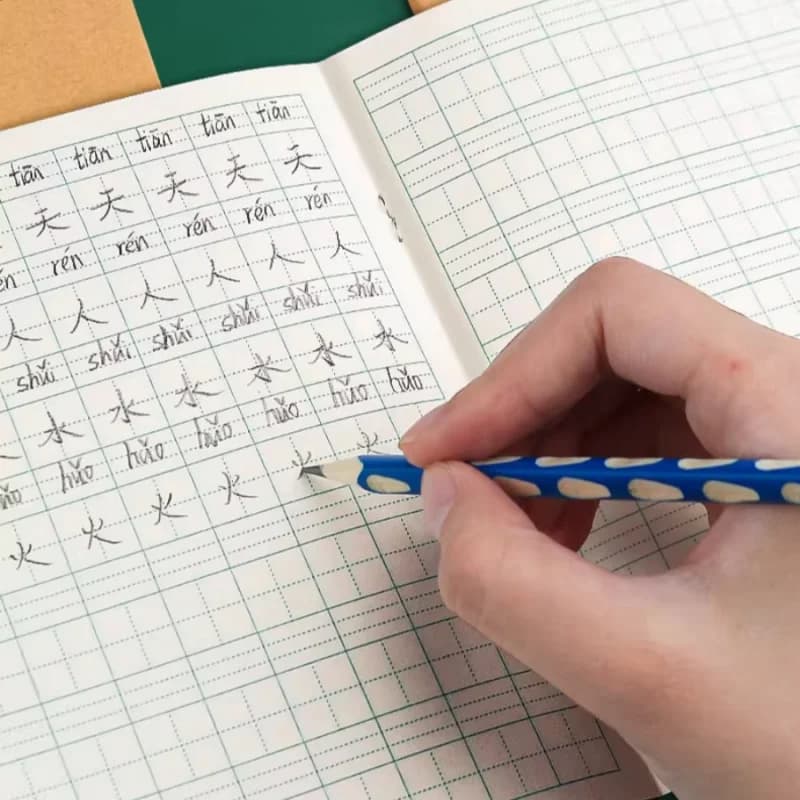 tiān tiān tiān tiān tiān
天 天 天 天 天
rén rén rén rén rén
人 人 人 人 人 人
shuǐ shuǐ shuǐ shuǐ shuǐ shuǐ
水 水 水 水 水 水
huǒ huǒ huǒ huǒ huǒ huǒ
火 火 火 火 火 火